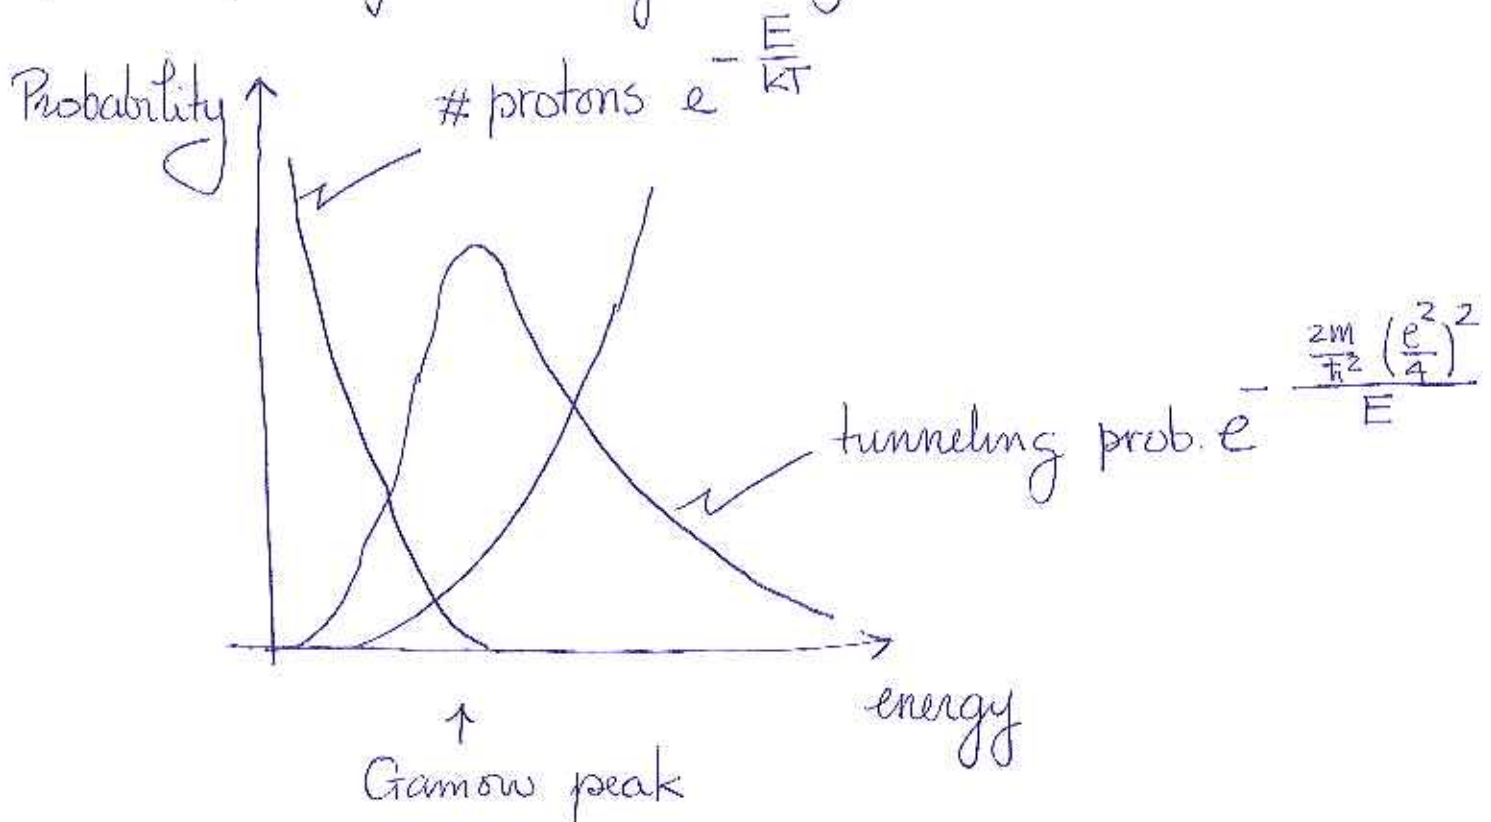 Probability
# protons e^{-\frac{E}{kT}}
tunneling prob. e^{-\frac{\frac{2m}{\hbar^2}\left(\frac{e^2}{4}\right)^2}{E}}
energy
↑
Gamow peak